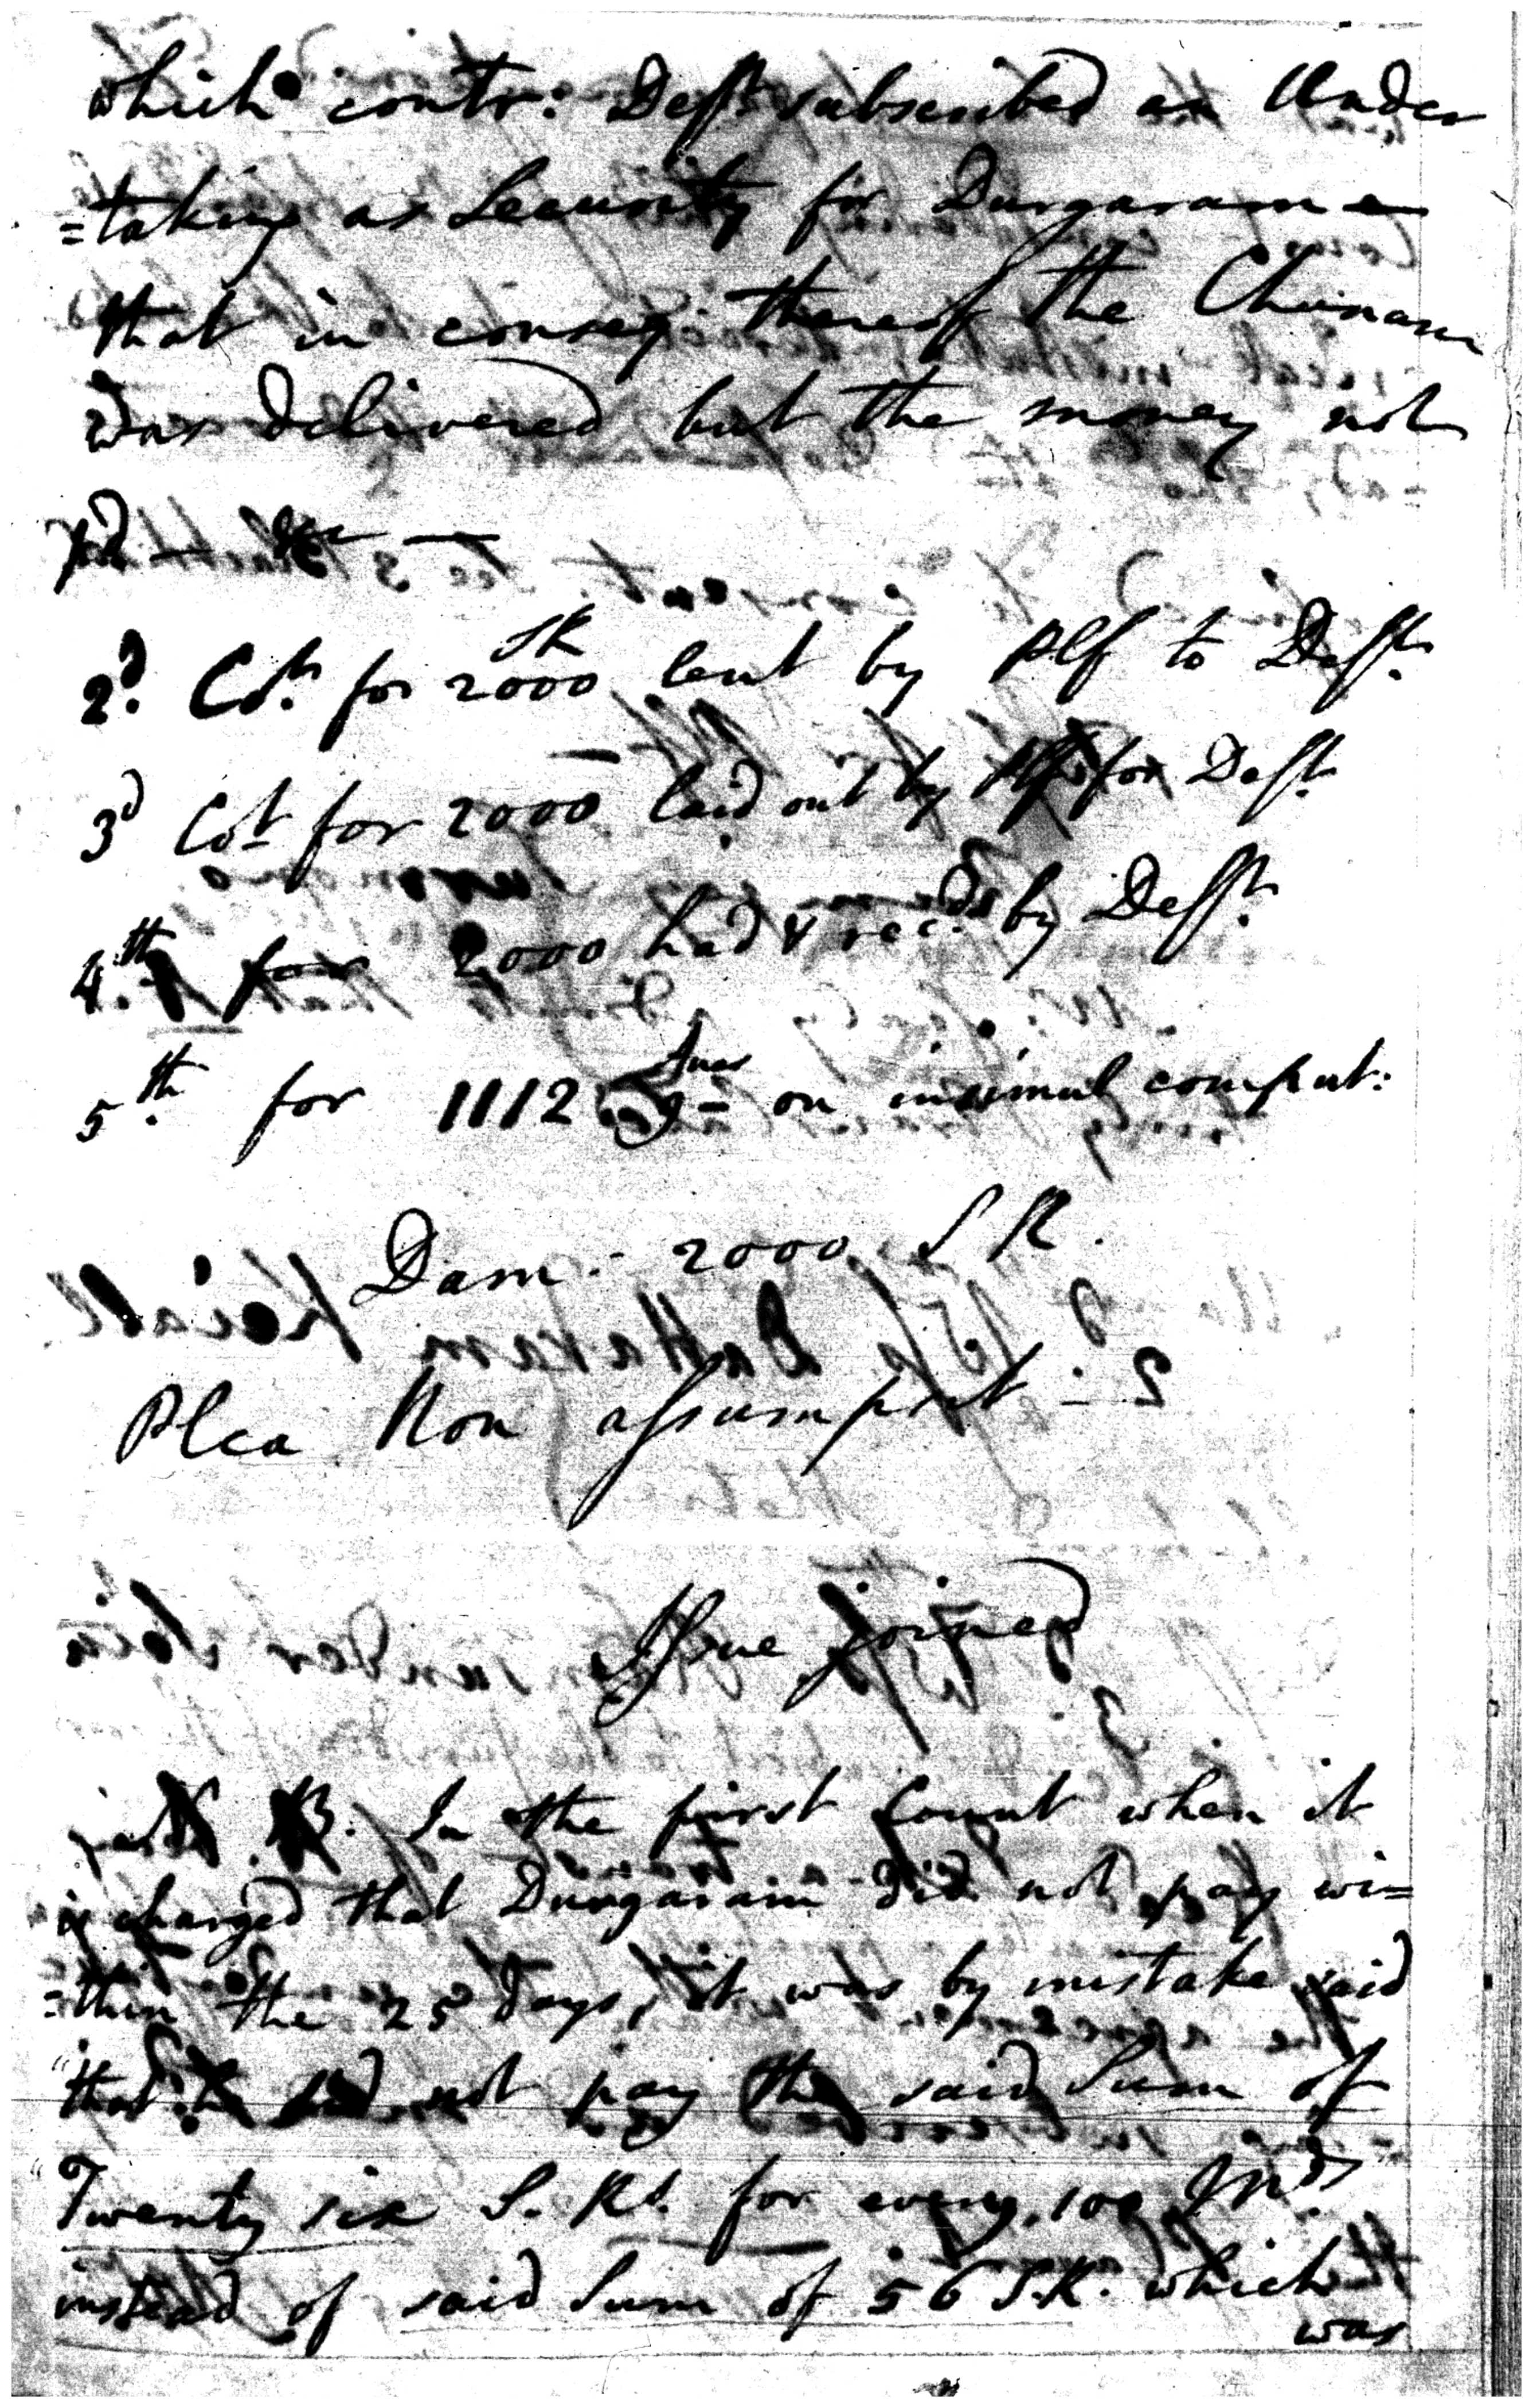 which contr: Deft. subscribed an Under
=taking as Security for Durgaram
that in conseq thereof the Chunam
was delivered but the money not
pd — &c —
2d. Cot. for 2000 SR lent by Plf to Deft.
3d Cot for 2000 laid out by Plf for Deft.
4.th for 2000 had & recd. by Deft.
5.th for 1112 9 Anas on insimul comput:
Dam: 2000 SR.
Plea Non assumpsit
Issue joined
N. B. In the first Count when it
is charged that Durgaram did not pay wi=
=thin the 25 days, it was by mistake said
"that he did not pay the said Sum of
"Twenty six S. Rs. for every 100 Mds.
instead of said Sum of 56 S.R. which
was